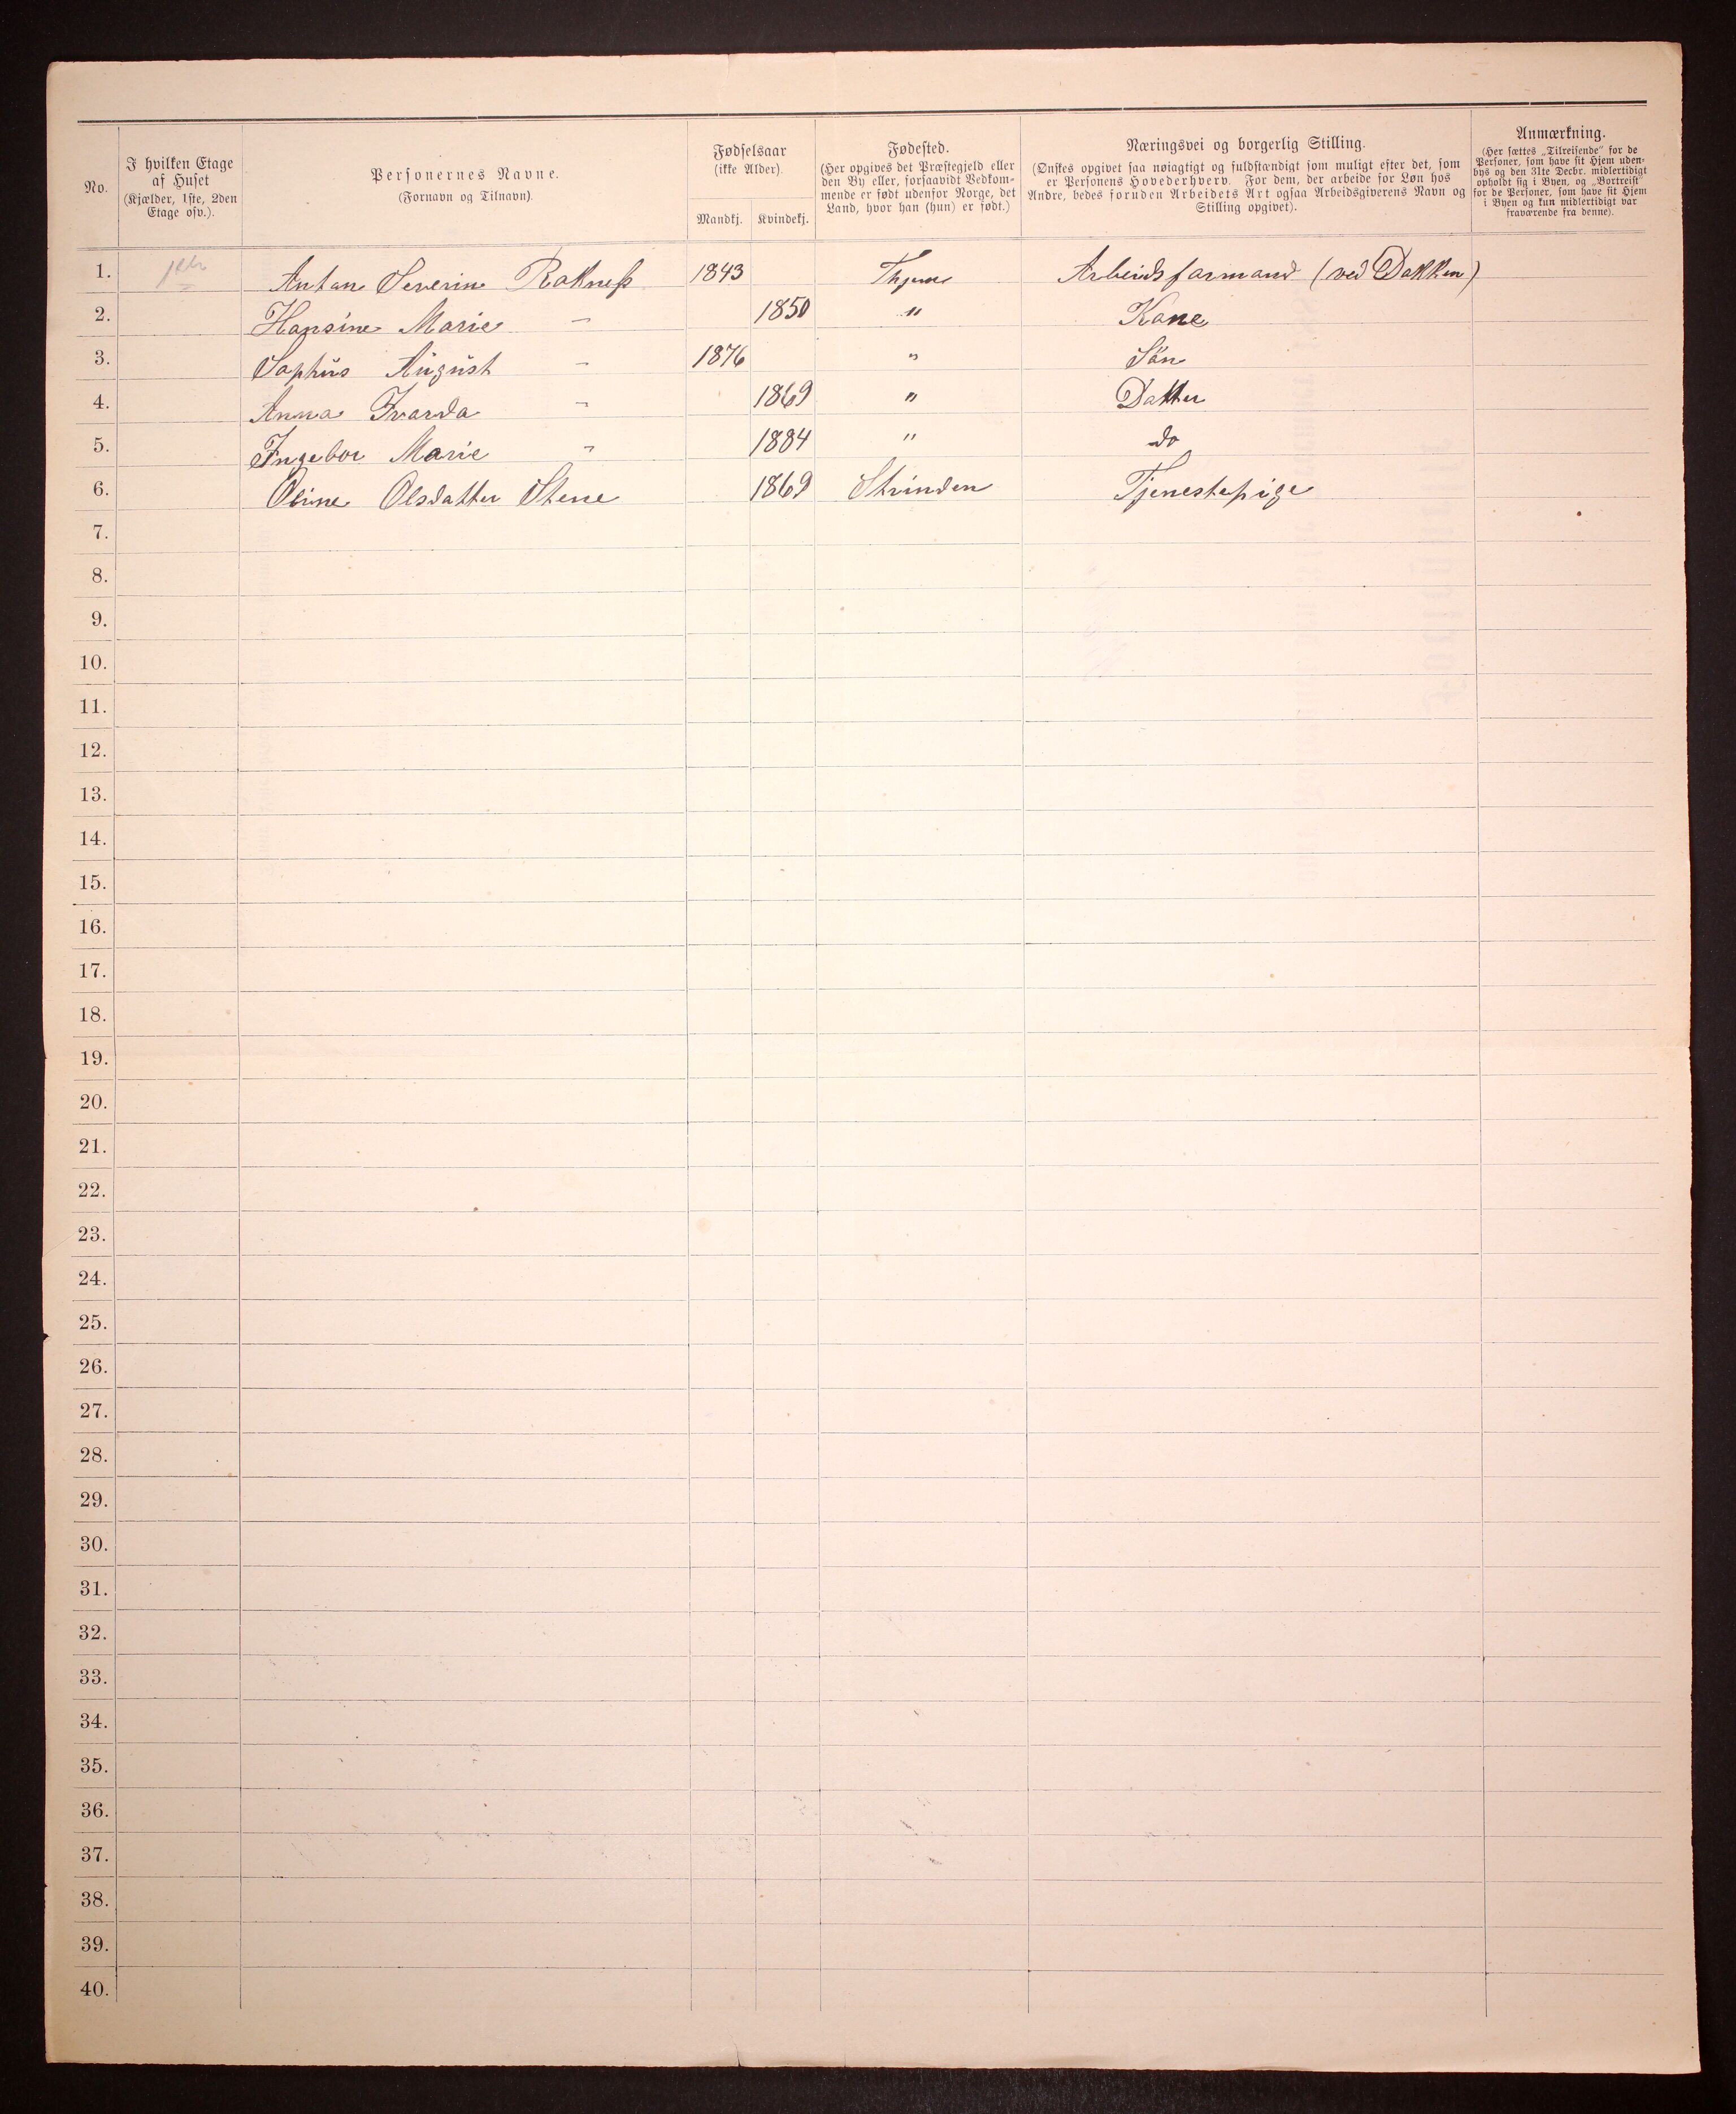 No.
I hvilken Etage af Huset (Kjælder, 1ste, 2den Etage osv.).
Personernes Navne. (Fornavn og Tilnavn).
Fødselsaar (ikke Alder).
Mandkj. Kvindekj.
Fødested. (Her opgives det Præstegjeld eller den By eller, forsaavidt Vedkommende er født udenfor Norge, det Land, hvor han (hun) er født.)
Næringsvei og borgerlig Stilling. (Ønskes opgivet saa nøiagtigt og fuldstændigt som muligt efter det, som er Personens Hovederhverv. For dem, der arbeide for Løn hos Andre, bedes foruden Arbeidets Art ogsaa Arbeidsgiverens Navn og Stilling opgivet).
Anmærkning. (Her sættes „Tilreisende" for de Personer, som have sit Hjem udenbys og den 31te Decbr. midlertidigt opholdt sig i Byen, og „Bortreist" for de Personer, som have sit Hjem i Byen og kun midlertidigt var fraværende fra denne).
1. Antan Severin Rakneß 1843 Thjem Arbeidsformand (ved Dokken)
2. Hansine Marie - 1850 " Kone
3. Sophus August - 1876 " Sön
4. Anna Ivarda - 1869 " Datter
5. Ingebor Marie - 1884 " do
6. Oline Olsdatter Stene 1869 Strinden Tjenestepige
7.
8.
9.
10.
11.
12.
13.
14.
15.
16.
17.
18.
19.
20.
21.
22.
23.
24.
25.
26.
27.
28.
29.
30.
31.
32.
33.
34.
35.
36.
37.
38.
39.
40.